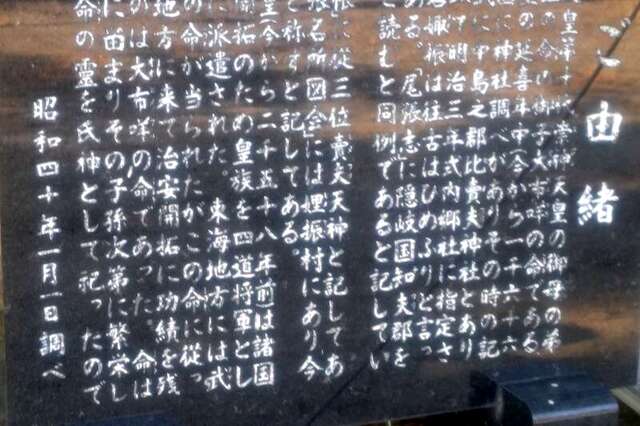 ご由緒
皇第十代崇神天皇の御母の弟
王の命の御子大布咩の命である
の延喜年中今から一千六十六
に神社調べがありその時の記
に中島之郡比賣夫神社とあり
て明治三年式内郷社に指定さ
娵振は往古はひめふりと言っ
ある。尾張志に隠岐国知夫郡を
と読むと同例であると記してい
帳に従三位賣夫天神と記してあ
張名所図会には娌振村にあり今
と称すと記してある
皇(今から二千五十八年前)は諸国
拓のため皇族を四道将軍とし
に派遣された。東海地方には武
の命が当られたがこの命に従っ
地方に来て治安開拓に功績を残
のは大布咩の命であった。命は
に留まりその子孫次第に繁栄し
命の霊を氏神として祀ったので
昭和四十年一月一日調べ